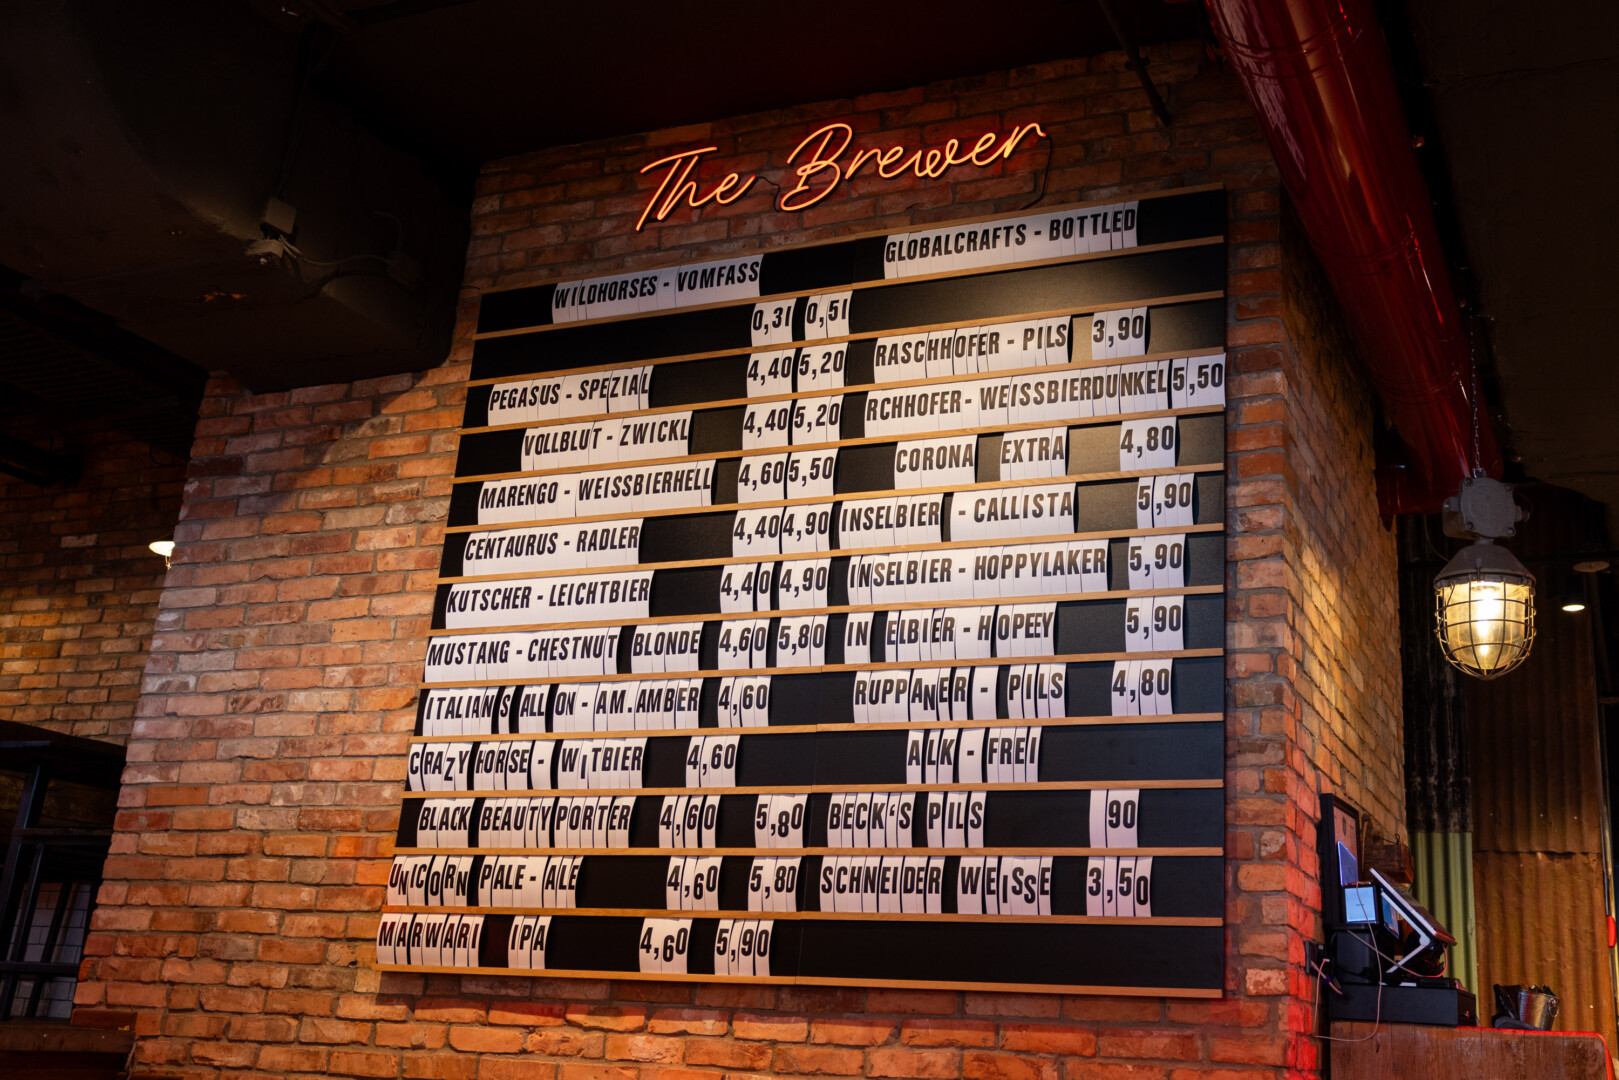 The Brewer
WILDHORSES - VOMFASS
0,3l 0,5l
PEGASUS - SPEZIAL 4,40 5,20
VOLLBLUT - ZWICKL 4,40 5,20
MARENGO - WEISSBIERHELL 4,60 5,50
CENTAURUS - RADLER 4,40 4,90
KUTSCHER - LEICHTBIER 4,40 4,90
MUSTANG - CHESTNUT BLONDE 4,60 5,80
ITALIAN S ALL ON - AM.AMBER 4,60
CRAZY HORSE - WITBIER 4,60
BLACK BEAUTY PORTER 4,60 5,80
UNICORN PALE - ALE 4,60 5,80
MARWARI IPA 4,60 5,90
GLOBALCRAFTS - BOTTLED
RASCHHOFER - PILS 3,90
RCHHOFER - WEISSBIERDUNKEL 5,50
CORONA EXTRA 4,80
INSELBIER - CALLISTA 5,90
INSELBIER - HOPPYLAKER 5,90
IN ELBIER - HOPEEY 5,90
RUPPANER - PILS 4,80
ALK - FREI
BECK'S PILS 90
SCHNEIDER WEISSE 3,50